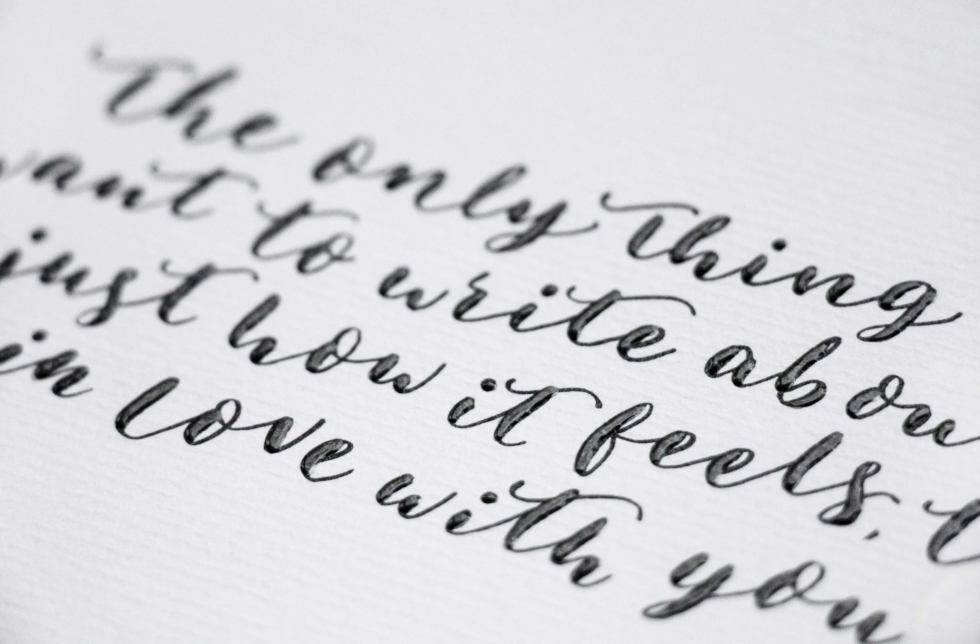 The only thing
want to write abou
just how it feels, t
in love with you